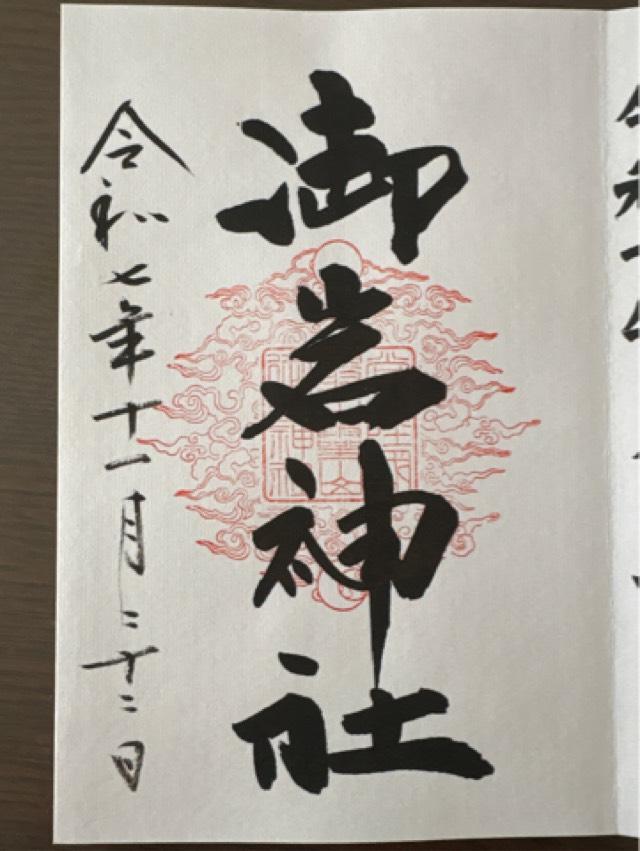 御岩神社
令和七年十一月二十二日